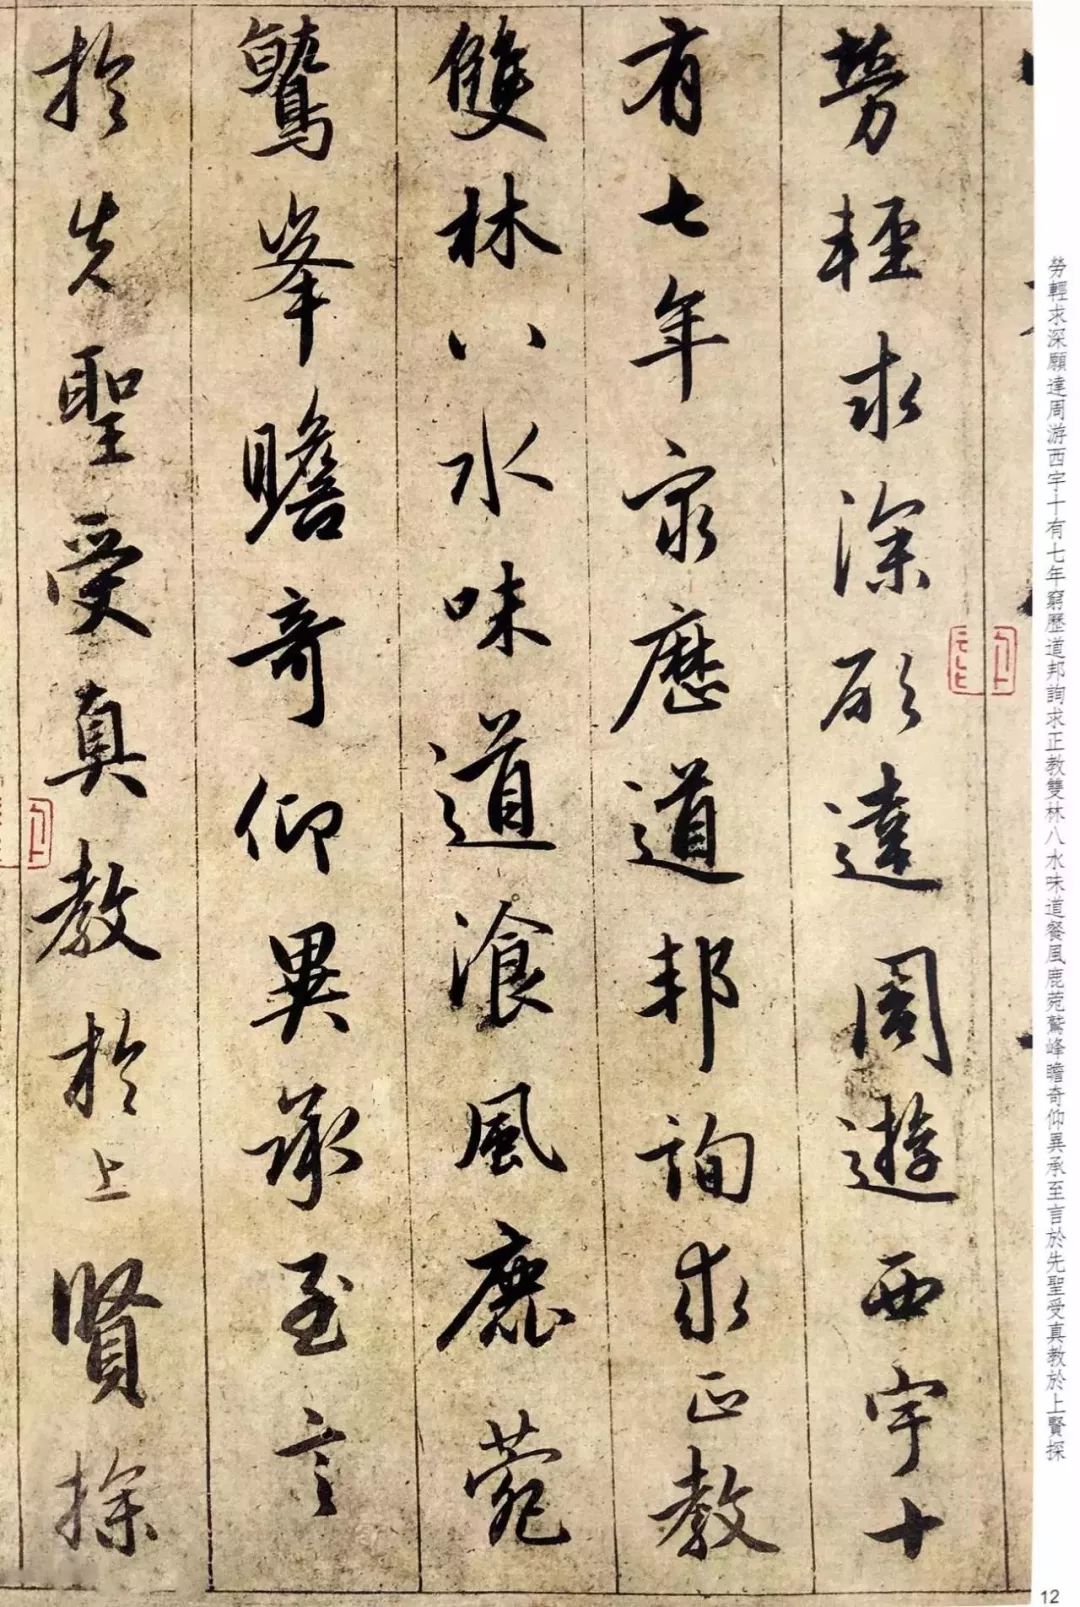 勞輕求深願達周游西宇十有七年窮歷道邦詢求正教雙林八水味道餐風鹿菀鷲峰瞻奇仰異承至言於先聖受真教於上賢探
勞輕求深願達周遊西宇十
有七年窮歷道邦詢求正教
雙林八水味道湌風鹿菀
鷲峯瞻奇仰異承至言
於先聖受真教於上賢探
12